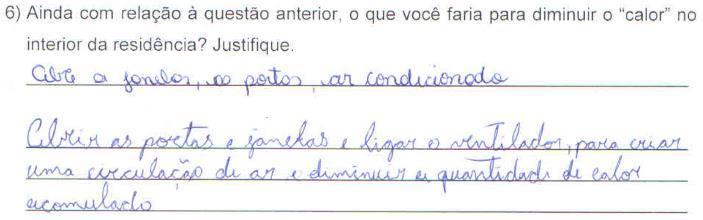 6) Ainda com relação à questão anterior, o que você faria para diminuir o “calor” no
interior da residência? Justifique.
abre a janelas, as portas, ar condicionado
Abrir as portas e janelas e ligar o ventilador, para criar
uma circulação de ar e diminuir a quantidade de calor
acomulado